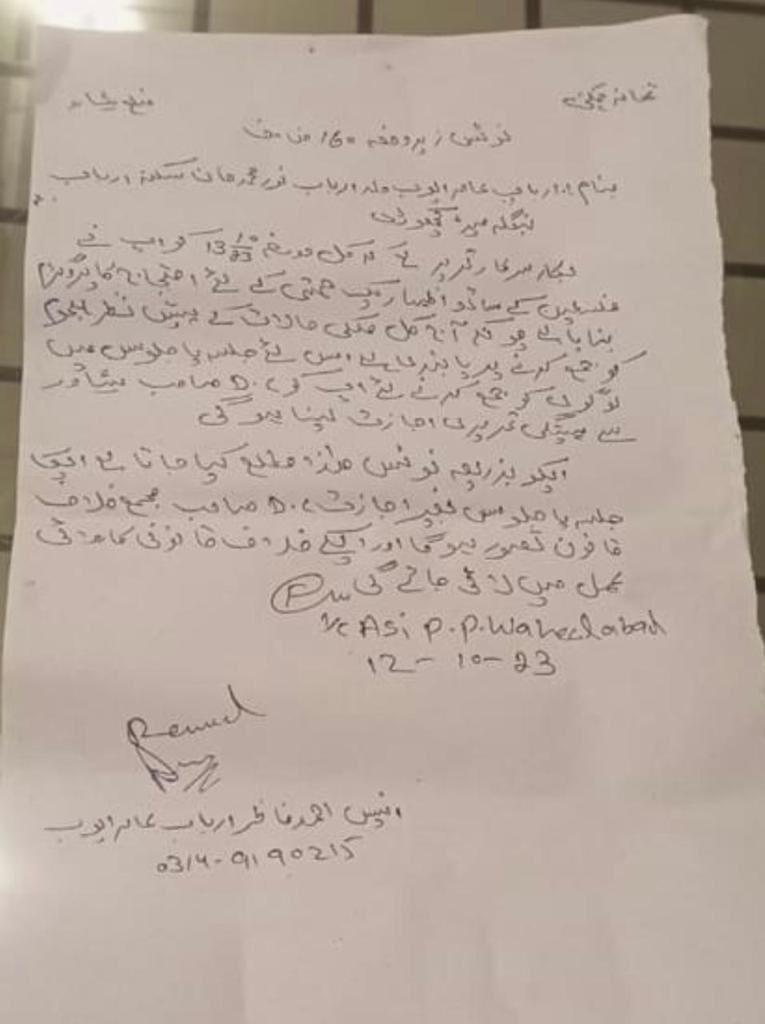 تھانہ چمکنی ضلع پشاور
نوٹس زیر دفعہ 160 ض ف
بنام ارباب عامر ایوب ولد ارباب نور محمد خان سکنہ ارباب
بنگلہ میرہ کچھوڑی
بجانب تحریر ہے کہ کل مورخہ 13 10/23 کو آپ نے
فلسطین کے ساتھ اظہار یک جہتی کے لئے احتجاج کا پروگرام
بنایا ہے چونکہ آج کل ملکی حالات کے پیش نظر ہجوم
کو جمع کرنے پر پابندی ہے اس لئے جلسہ یا جلوس میں
لوگوں کو جمع کرنے لئے آپ کو D.C صاحب پشاور
سے پیشگی تحریری اجازت لینا ہوگی
آپکو بذریعہ نوٹس ھذا مطلع کیا جاتا ہے آپکا
جلسہ یا جلوس بغیر اجازت D.C صاحب مجمع خلاف
قانون تصور ہوگا اور آپکے خلاف قانونی کاروائی
عمل میں لائی جائے گی
I/c ASi P.P. Waheedabad
12-10-23
انیس احمد ارباب عامر ایوب
0314-9190215